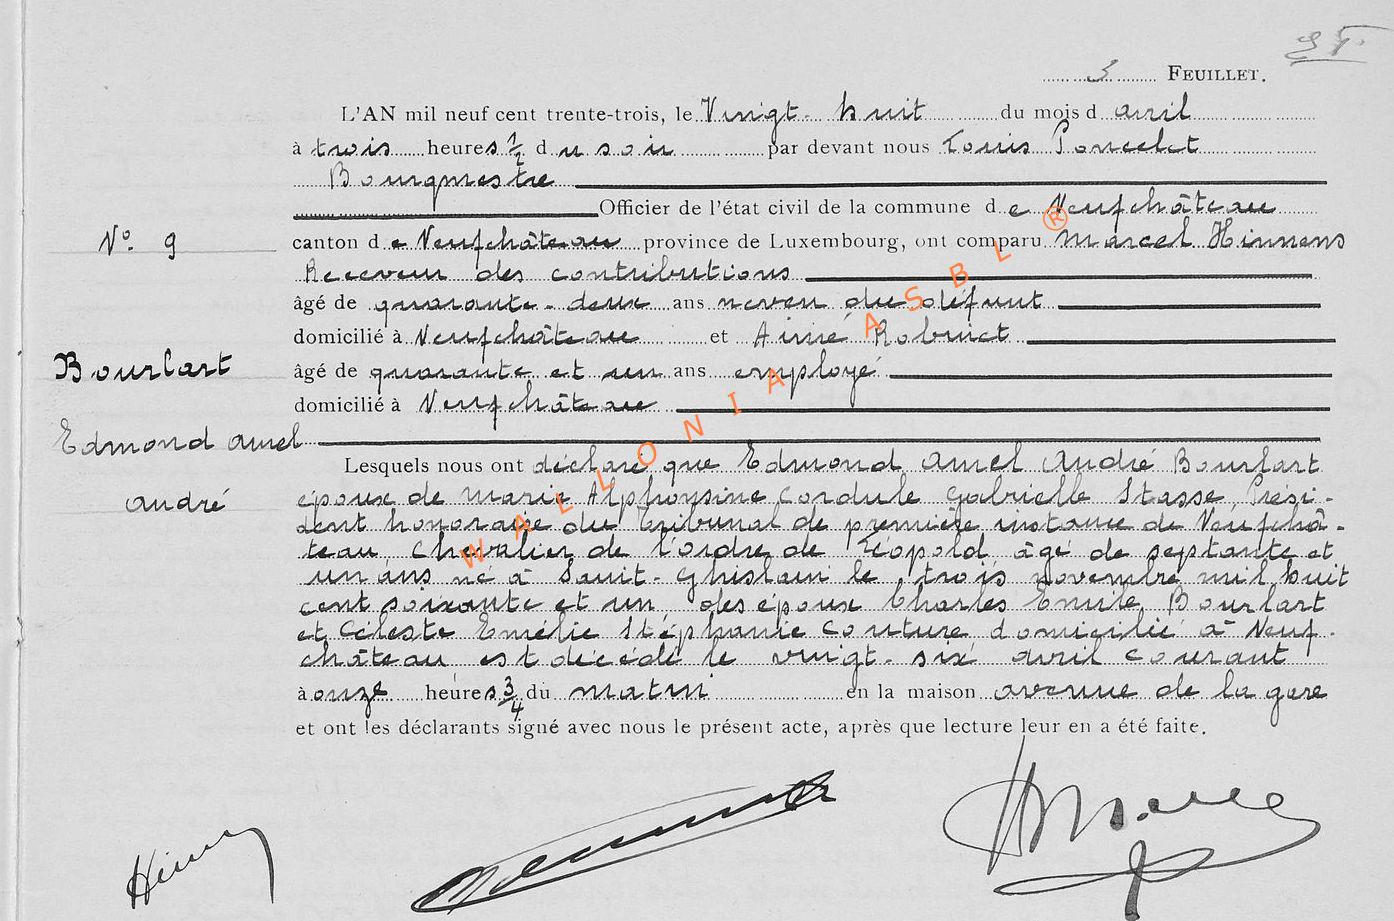 3 FEUILLET.
L'AN mil neuf cent trente-trois, le Vingt-huit du mois d avril
à trois heures 1/2 d u soir par devant nous Louis Poncelet
Bourgmestre
Officier de l'état civil de la commune d e Neufchâteau
N° 9
canton d e Neufchâteau province de Luxembourg, ont comparu Marcel Hinnens
Receveur des contributions
âgé de quarante-deux ans neveu du défunt
domicilié à Neufchâteau et Aimé Robinet
Bourlart
âgé de quarante et un ans employé
domicilié à Neufchâteau
Edmond Amel
André
Lesquels nous ont déclaré que Edmond Amel André Bourlart
époux de Marie Alphonsine Cordule Gabrielle Stasse Prési-
dent honoraire du tribunal de première instance de Neufchâ-
teau Chevalier de l'ordre de Léopold âgé de septante et
un ans né à Saint-Ghislain le trois novembre mil huit
cent soixante et un des époux Charles Emile Bourlart
et Céleste Emélie Stéphanie Couture domicilié à Neuf-
château est décédé le vingt-six avril courant
à onze heures 3/4 du matin en la maison avenue de la gare
et ont les déclarants signé avec nous le présent acte, après que lecture leur en a été faite.
WALLONIA ASBL ®